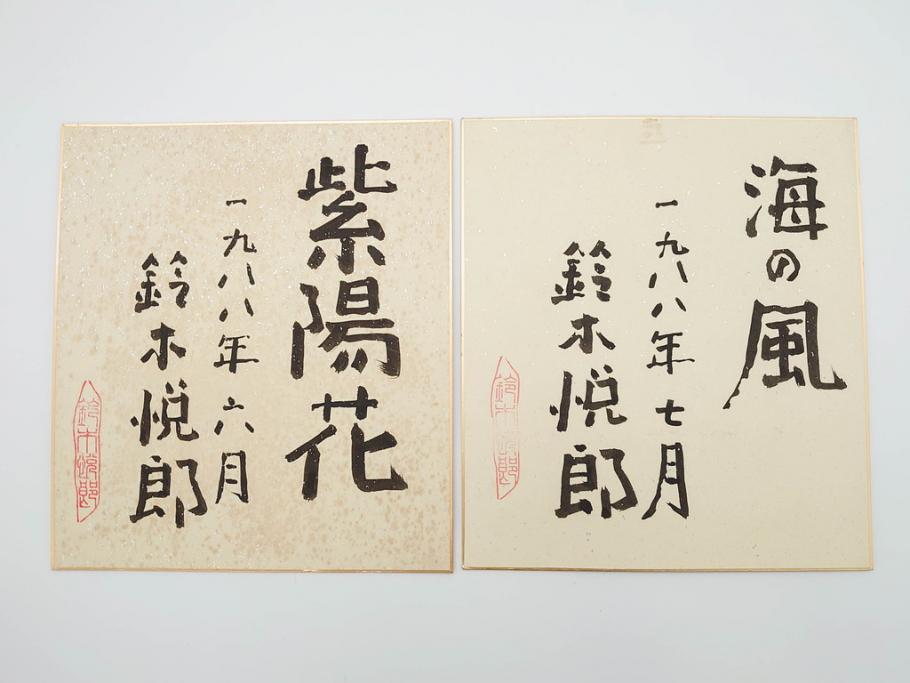 紫陽花
一九八八年六月
鈴木悦郎
鈴木悦郎
海の風
一九八八年七月
鈴木悦郎
鈴木悦郎